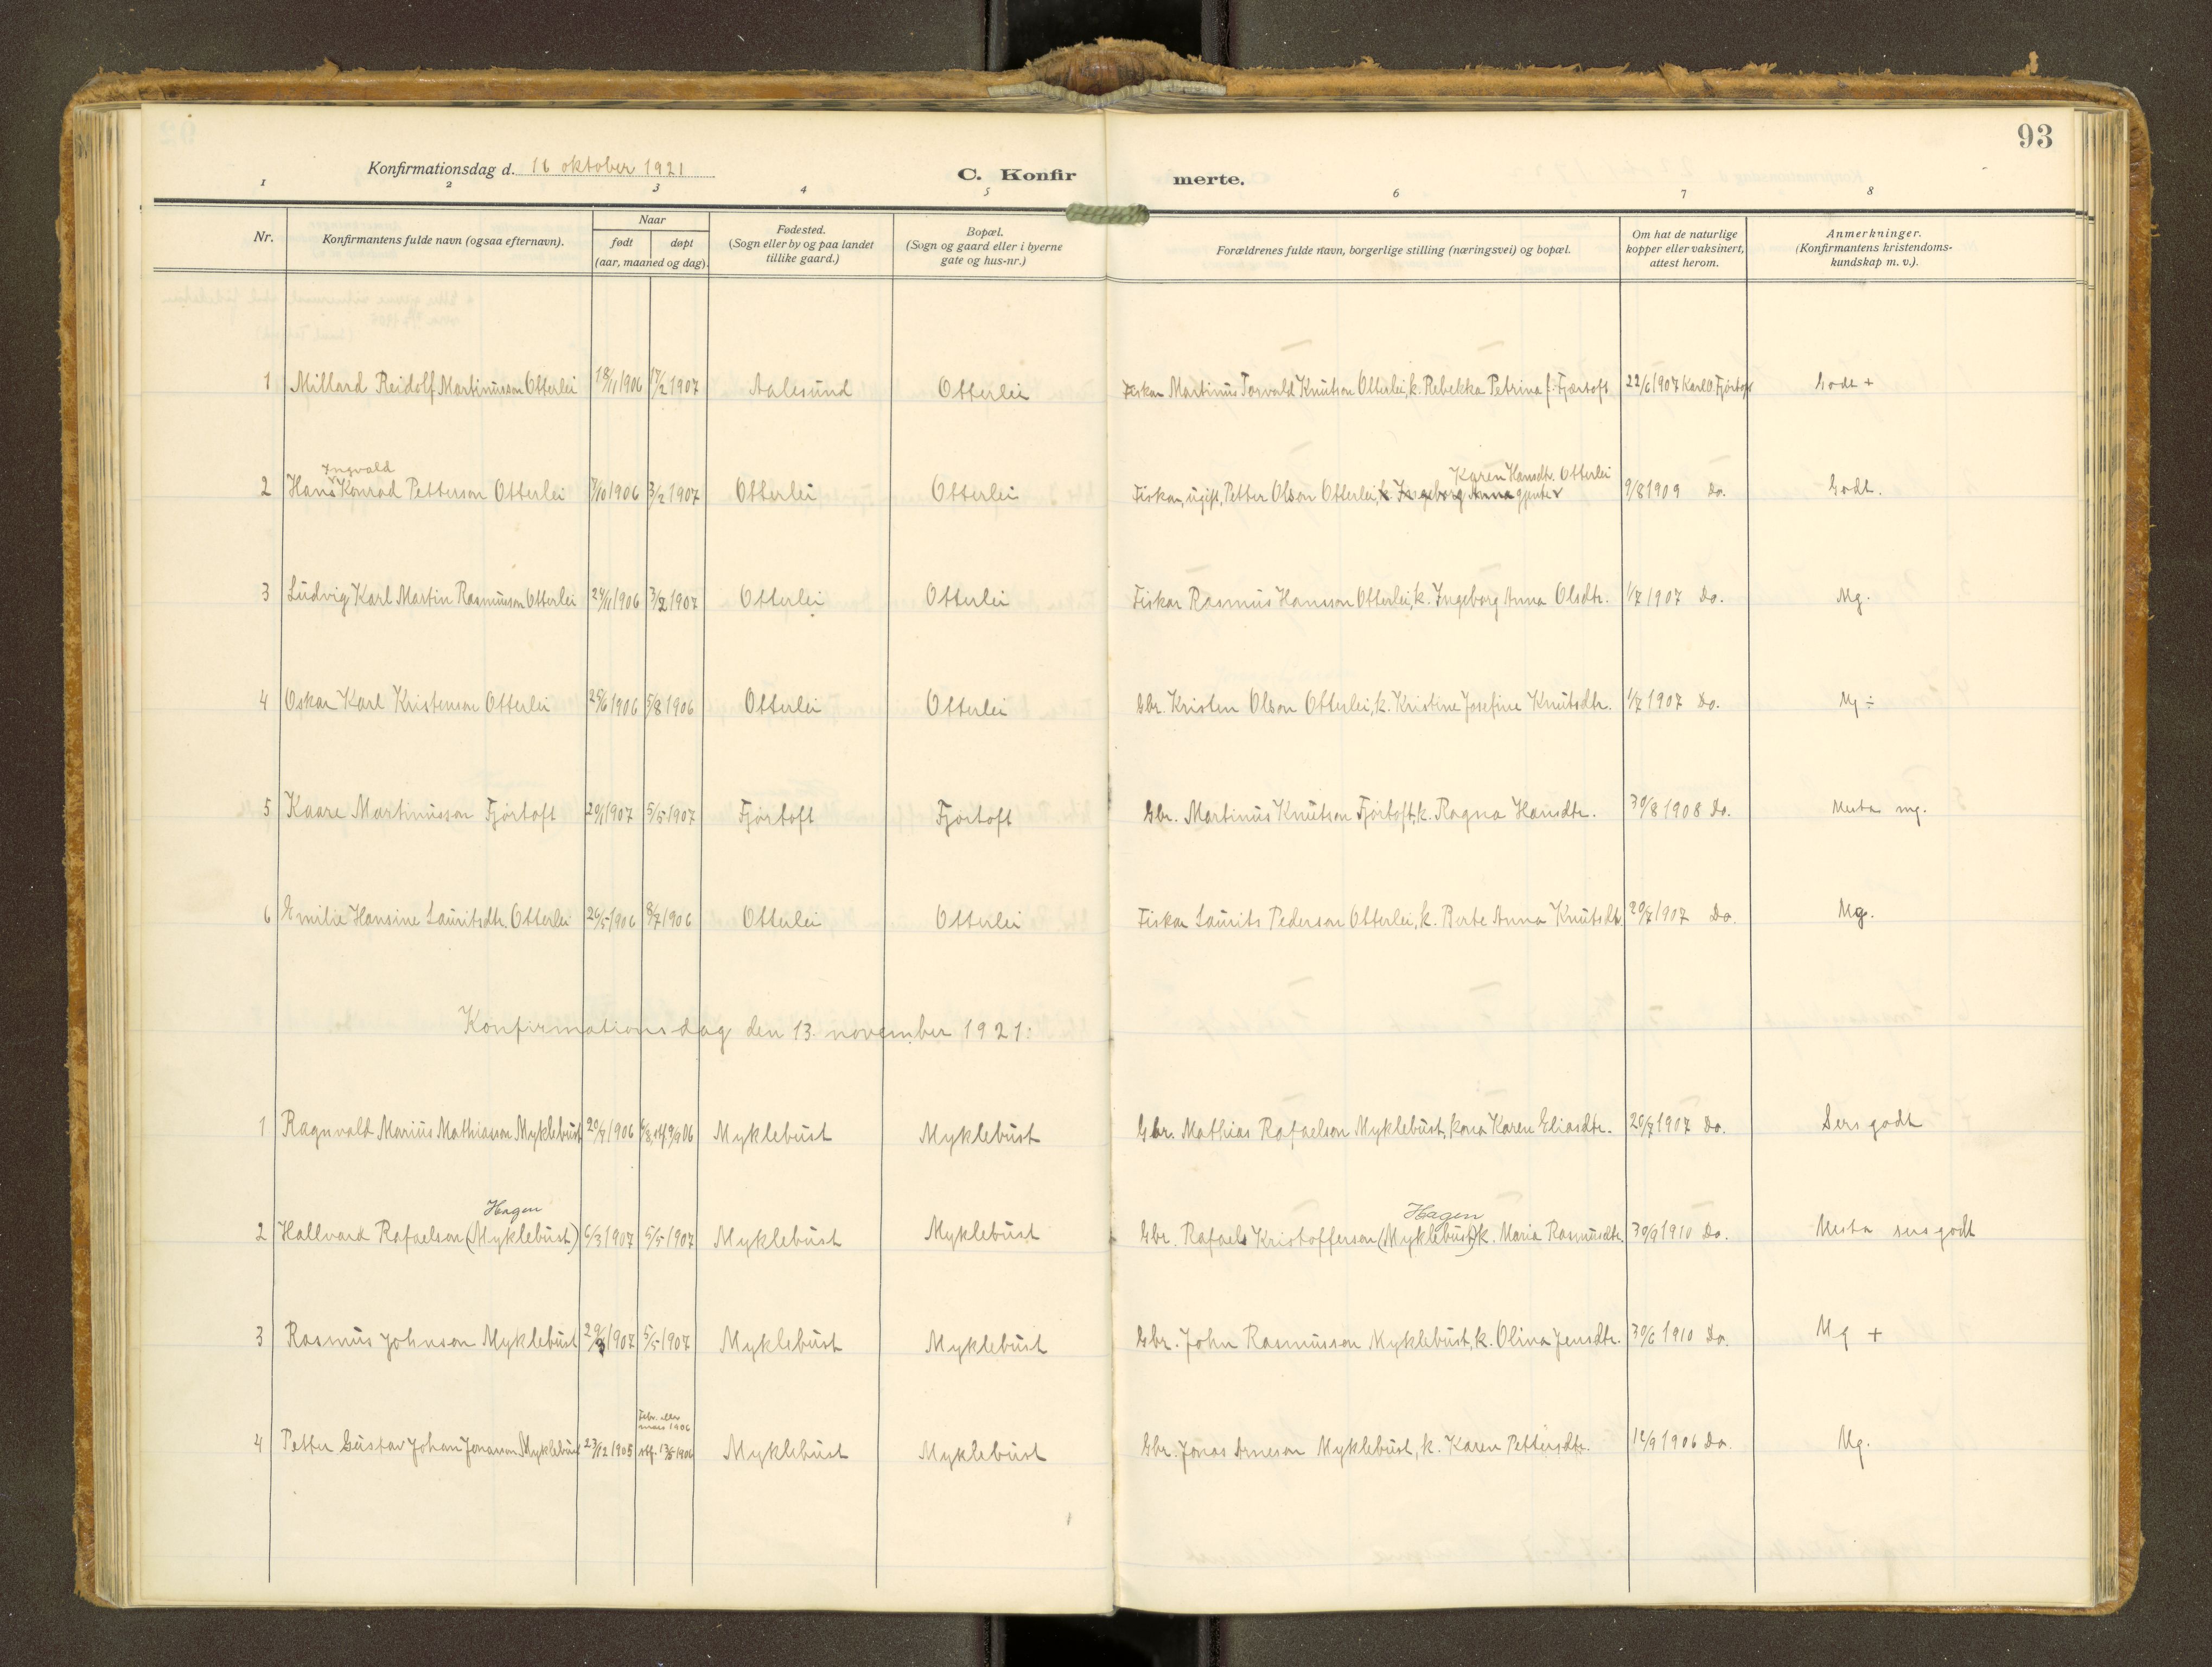 93
Konfirmationsdag d. 16 oktober 1921
C. Konfirmerte.
1 2 3 4 5 6 7 8
Nr.
Konfirmantens fulde navn (ogsaa efternavn).
Naar
født døpt
(aar, maaned og dag).
Fødested.
(Sogn eller by og paa landet
tillike gaard.)
Bopæl.
(Sogn og gaard eller i byerne
gate og hus-nr.)
Forældrenes fulde navn, borgerlige stilling (næringsvei) og bopæl.
Om hat de naturlige
kopper eller vaksinert,
attest herom.
Anmerkninger.
(Konfirmantens kristendoms-
kundskap m. v.).
1 Millard Reidolf Martinusson Otterlei 18/11 1906 17/2 1907 Aalesund Otterlei Fiskar Martinus Torvald Knutson Otterlei, k. Rebekka Petrina f. Fjærtoft 22/6 1907 Karl O. Fjørtoft Godt +
Ingvald
Karen Hansdtr. Otterlei
2 Hans Konrad Petterson Otterlei 7/10 1906 3/2 1907 Otterlei Otterlei Fiskar, ugift, Petter Olson Otterlei, k. Ingeborg Anna gjente 9/8 1909 Do. Godt.
3 Ludvig Karl Martin Rasmusson Otterlei 29/11 1906 3/2 1907 Otterlei Otterlei Fiskar Rasmus Hansson Otterlei, k. Ingeborg Anna Olsdtr. 1/7 1907 Do. Mg.
4 Oskar Karl Kristenson Otterlei 25/6 1906 5/8 1906 Otterlei Otterlei Gbr. Kristen Olson Otterlei, k. Kristine Josefine Knutsdtr. 1/7 1907 Do. Mg ÷
5 Kaare Martinusson Fjørtoft 29/1 1907 5/5 1907 Fjørtoft Fjørtoft Gbr. Martinus Knutson Fjørtoft, k. Ragna Hansdtr. 30/8 1908 Do. Mesta mg.
6 Emilie Hansine Lauritsdtr. Otterlei 26/5 1906 8/7 1906 Otterlei Otterlei Fiskar Laurits Pederson Otterlei, k. Berte Anna Knutsdtr. 20/7 1907 Do. Mg.
Konfirmationsdag den 13. november 1921:
1 Ragnvald Marius Mathiasson Myklebust 20/7 1906 Myklebust Myklebust Gbr. Mathias Rafaelson Myklebust, kona Karen Eliasdtr. 20/7 1907 Do. Sers godt
Hagen
Hagen
2 Hallvard Rafaelson (Myklebust) 6/3 1907 5/5 1907 Myklebust Myklebust Gbr. Rafael Kristofferson (Myklebust) k. Maria Rasmusdtr. 30/9 1910 Do. Mesta sers godt
3 Rasmus Johnson Myklebust 29/3 1907 5/5 1907 Myklebust Myklebust Gbr. John Rasmusson Myklebust, k. Olina Jensdtr. 30/6 1910 Do. Mg +
Febr. eller
mars 1906
4 Petter Gustav Johan Jonasson Myklebust 23/12 1905 stf. 13/5 1906 Myklebust Myklebust Gbr. Jonas Arneson Myklebust, k. Karen Pettersdtr. 12/9 1906 Do. Mg.